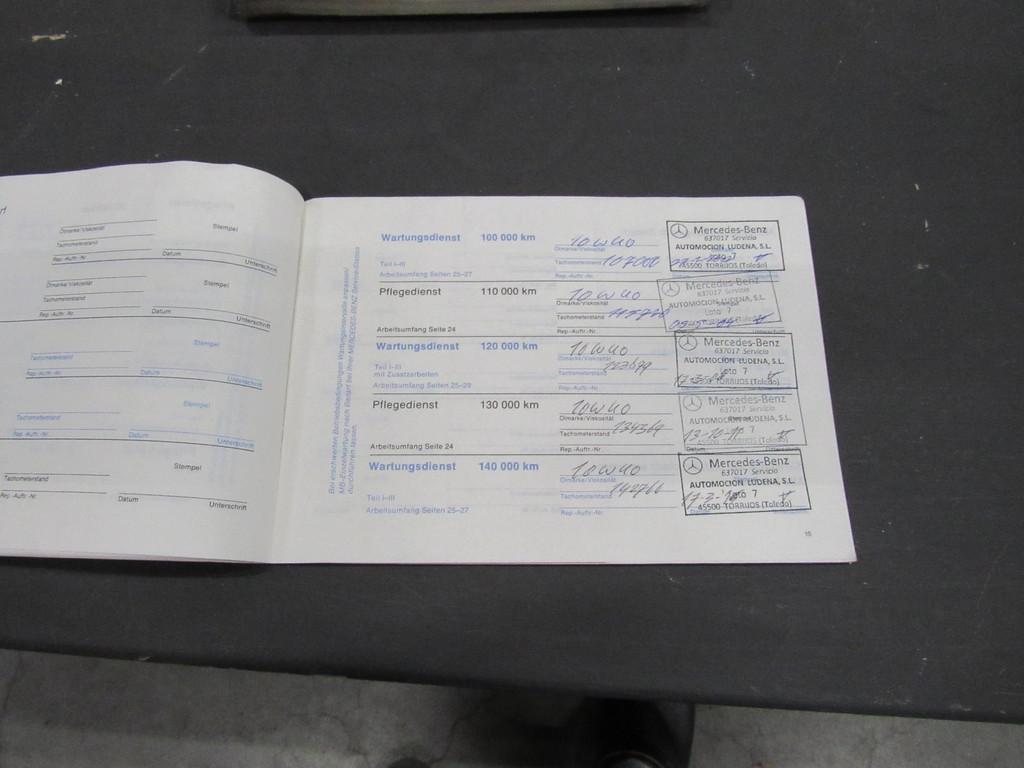 Stempel
Ölmarke/Viskosität
Tachometerstand
Rep.-Auftr.-Nr. Datum Unterschrift
Stempel
Ölmarke/Viskosität
Tachometerstand
Rep.-Auftr.-Nr. Datum Unterschrift
Stempel
Tachometerstand
Rep.-Auftr.-Nr. Datum Unterschrift
Stempel
Tachometerstand
Rep.-Auftr.-Nr. Datum Unterschrift
Stempel
Tachometerstand
Rep.-Auftr.-Nr. Datum Unterschrift
Bei erschwerten Betriebsbedingungen Wartungsintervalle anpassen/
MB-Einzelwartung nach Bedarf bei Ihrer MERCEDES-BENZ Service-Station
durchführen lassen.
Wartungsdienst 100 000 km
Teil I–III
Arbeitsumfang Seiten 25–27
10W40
Ölmarke/Viskosität
Tachometerstand 107000
Rep.-Auftr.-Nr.
Mercedes-Benz
637017 Servicio
AUTOMOCION LUDENA, S.L.
45500 TORRIJOS (Toledo)
Pflegedienst 110 000 km
Arbeitsumfang Seite 24
10W40
Ölmarke/Viskosität
Tachometerstand
Rep.-Auftr.-Nr.
Mercedes-Benz
637017 Servicio
AUTOMOCION LUDENA, S.L.
Loto 7
Wartungsdienst 120 000 km
Teil I–III
mit Zusatzarbeiten
Arbeitsumfang Seiten 25–29
10W40
Ölmarke/Viskosität
Tachometerstand 123679
Rep.-Auftr.-Nr.
Mercedes-Benz
637017 Servicio
AUTOMOCION LUDENA, S.L.
Loto 7
45500 TORRIJOS (Toledo)
Pflegedienst 130 000 km
Arbeitsumfang Seite 24
10W40
Ölmarke/Viskosität
Tachometerstand 134369
Rep.-Auftr.-Nr.
Mercedes-Benz
637017 Servicio
AUTOMOCION LUDENA, S.L.
45500 TORRIJOS (Toledo)
Wartungsdienst 140 000 km
Teil I–III
Arbeitsumfang Seiten 25–27
10W40
Ölmarke/Viskosität
Tachometerstand
Rep.-Auftr.-Nr.
Mercedes-Benz
637017 Servicio
AUTOMOCION LUDENA, S.L.
Loto 7
45500 TORRIJOS (Toledo)
15